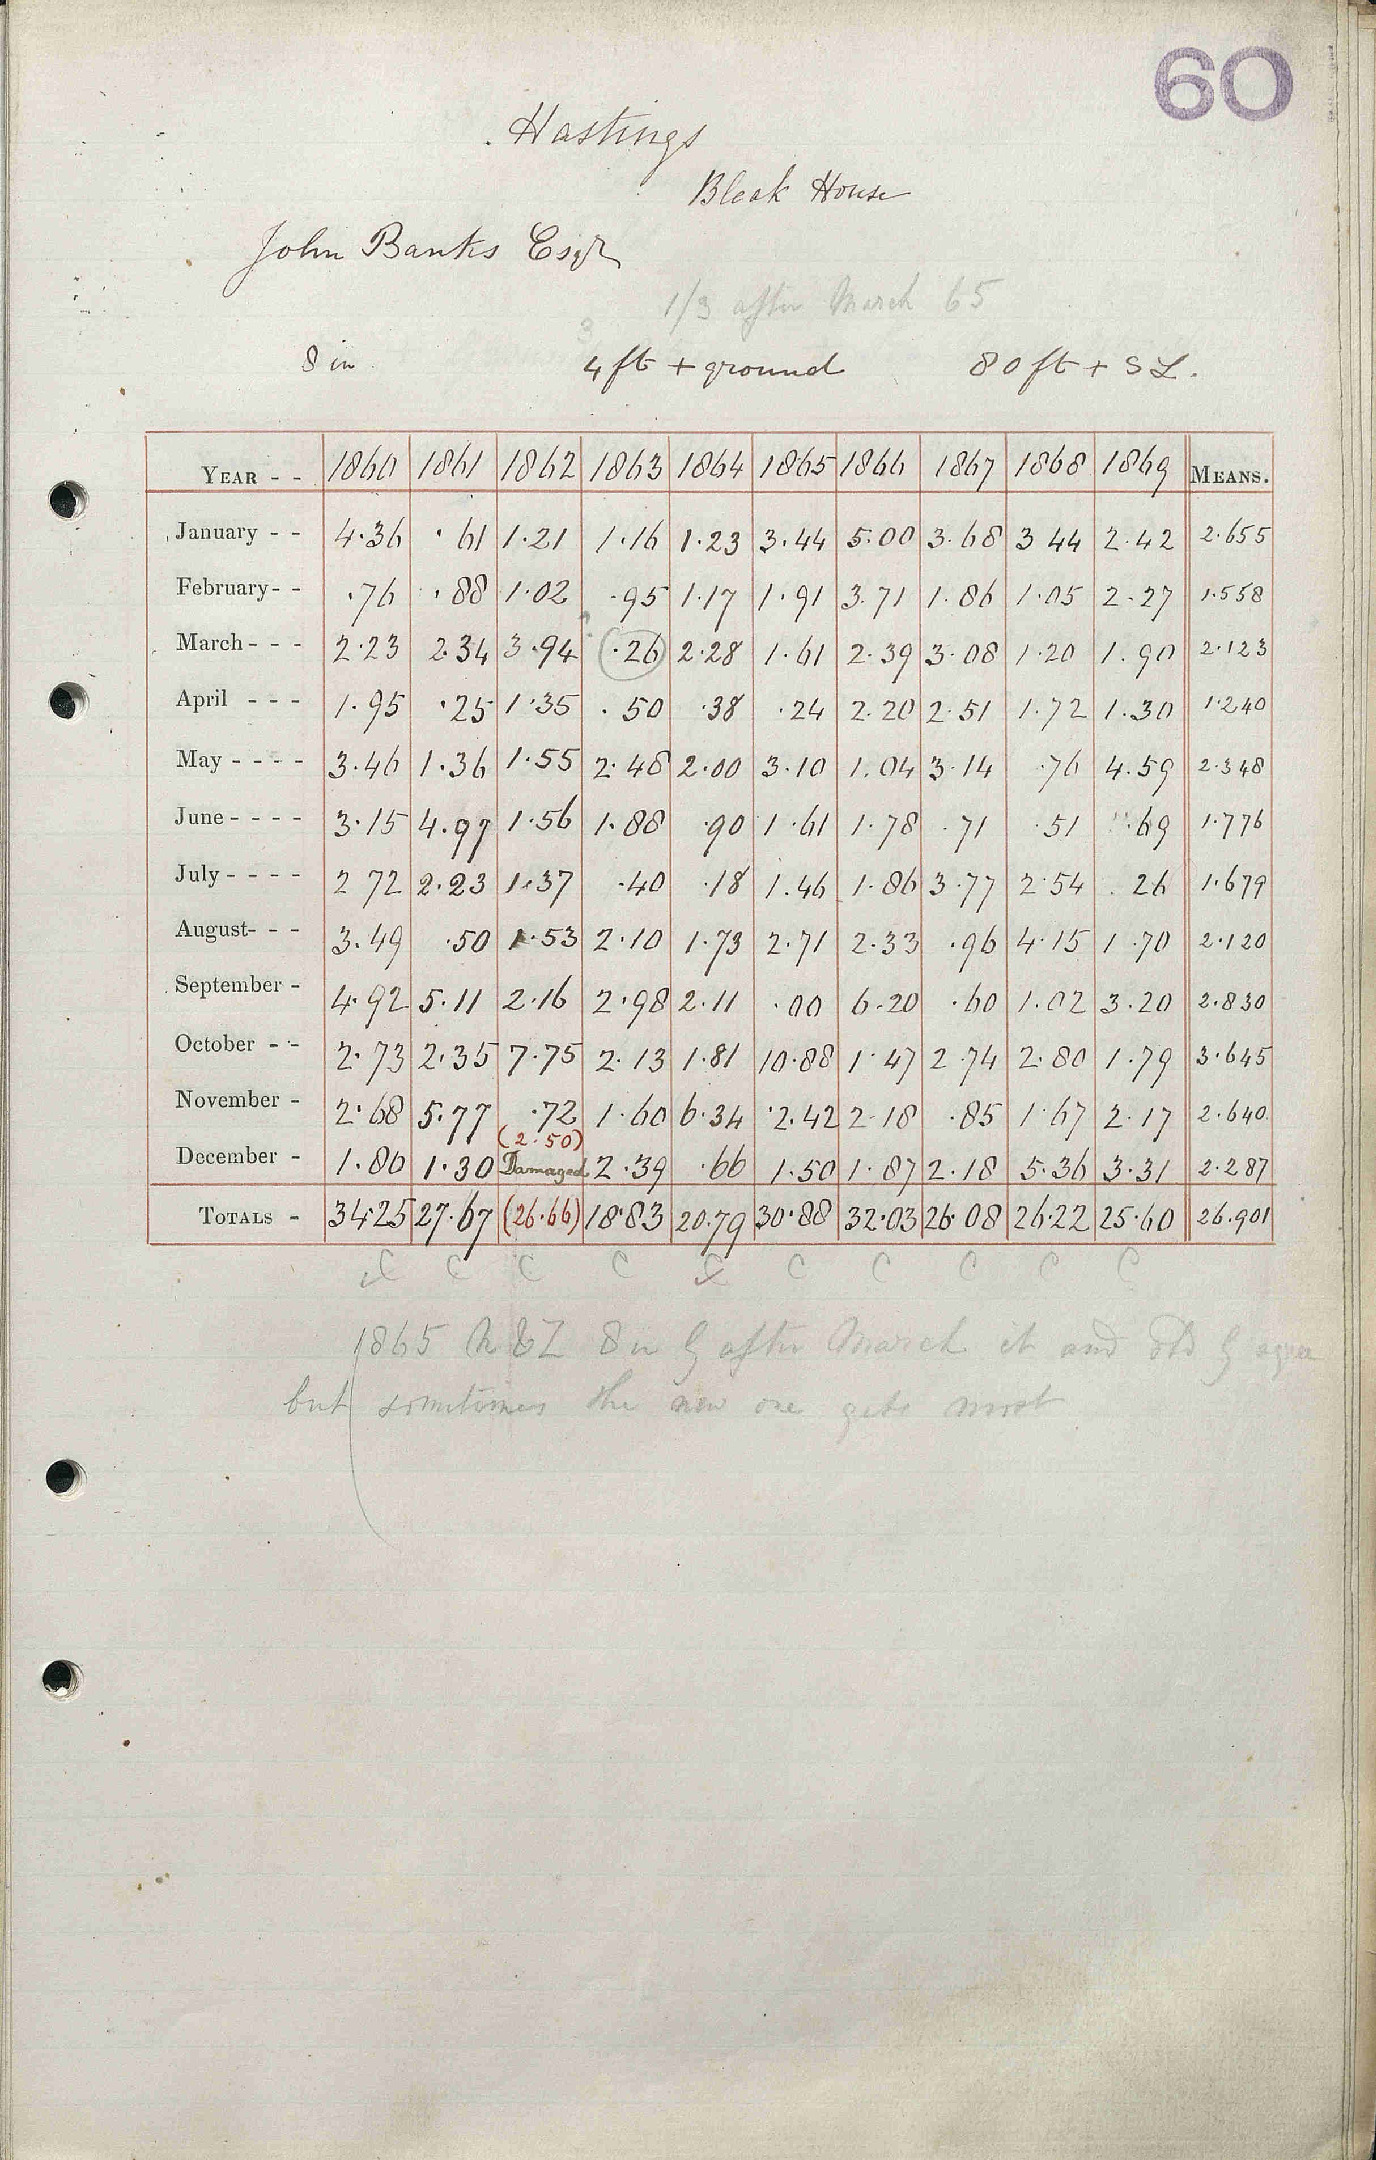 60
Hastings
Bleak House
John Banks Esqr
1/3 after March 65
3
8 in 4 ft + ground 80 ft + S L.
YEAR - - 1860 1861 1862 1863 1864 1865 1866 1867 1868 1869 MEANS.
January - - 4.36 .61 1.21 1.16 1.23 3.44 5.00 3.68 3 44 2.42 2.655
February - - .76 .88 1.02 .95 1.17 1.91 3.71 1.86 1.05 2.27 1.558
March - - - 2.23 2.34 3.94 (.26) 2.28 1.61 2.39 3.08 1.20 1.90 2.123
April - - - 1.95 .25 1.35 .50 .38 .24 2.20 2.51 1.72 1.30 1.240
May - - - - 3.46 1.36 1.55 2.48 2.00 3.10 1.04 3.14 .76 4.59 2.348
June - - - - 3.15 4.97 1.56 1.88 .90 1.61 1.78 .71 .51 .69 1.776
July - - - - 2 72 2.23 1.37 .40 .18 1.46 1.86 3.77 2.54 .26 1.679
August - - - 3.49 .50 1.53 2.10 1.73 2.71 2.33 .96 4.15 1.70 2.120
September - 4.92 5.11 2.16 2.98 2.11 .00 6.20 .60 1.02 3.20 2.830
October - - 2.73 2.35 7.75 2.13 1.81 10.88 1.47 2.74 2.80 1.79 3.645
November - 2.68 5.77 .72 1.60 6.34 2.42 2.18 .85 1.67 2.17 2.640
(2.50)
December - 1.80 1.30 Damaged 2.39 .66 1.50 1.87 2.18 5.36 3.31 2.287
TOTALS - 34.25 27.67 (26.66) 18.83 20.79 30.88 32.03 26.08 26.22 25.60 26.901
C C C C C C C C C C
1865 8 in G after March it and old G agree
but sometimes the new one gets most